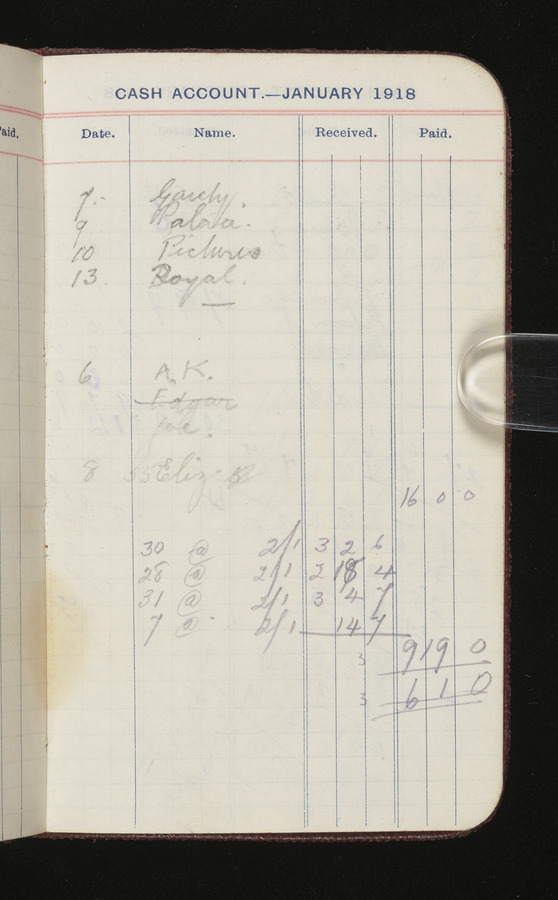 aid.
CASH ACCOUNT.—JANUARY 1918
Date. Name. Received. Paid.
7.
9
10 Pictures
13 Royal.
6 A. K.
Edgar
Joe.
8 55 Eliz.
16 0 0
30 @ 2/1 3 2 6
28 @ 2/1 2 18 4
31 @ 2/1 3 4 7
7 @ 2/1 14 7
3 9 19 0
3 6 1 0